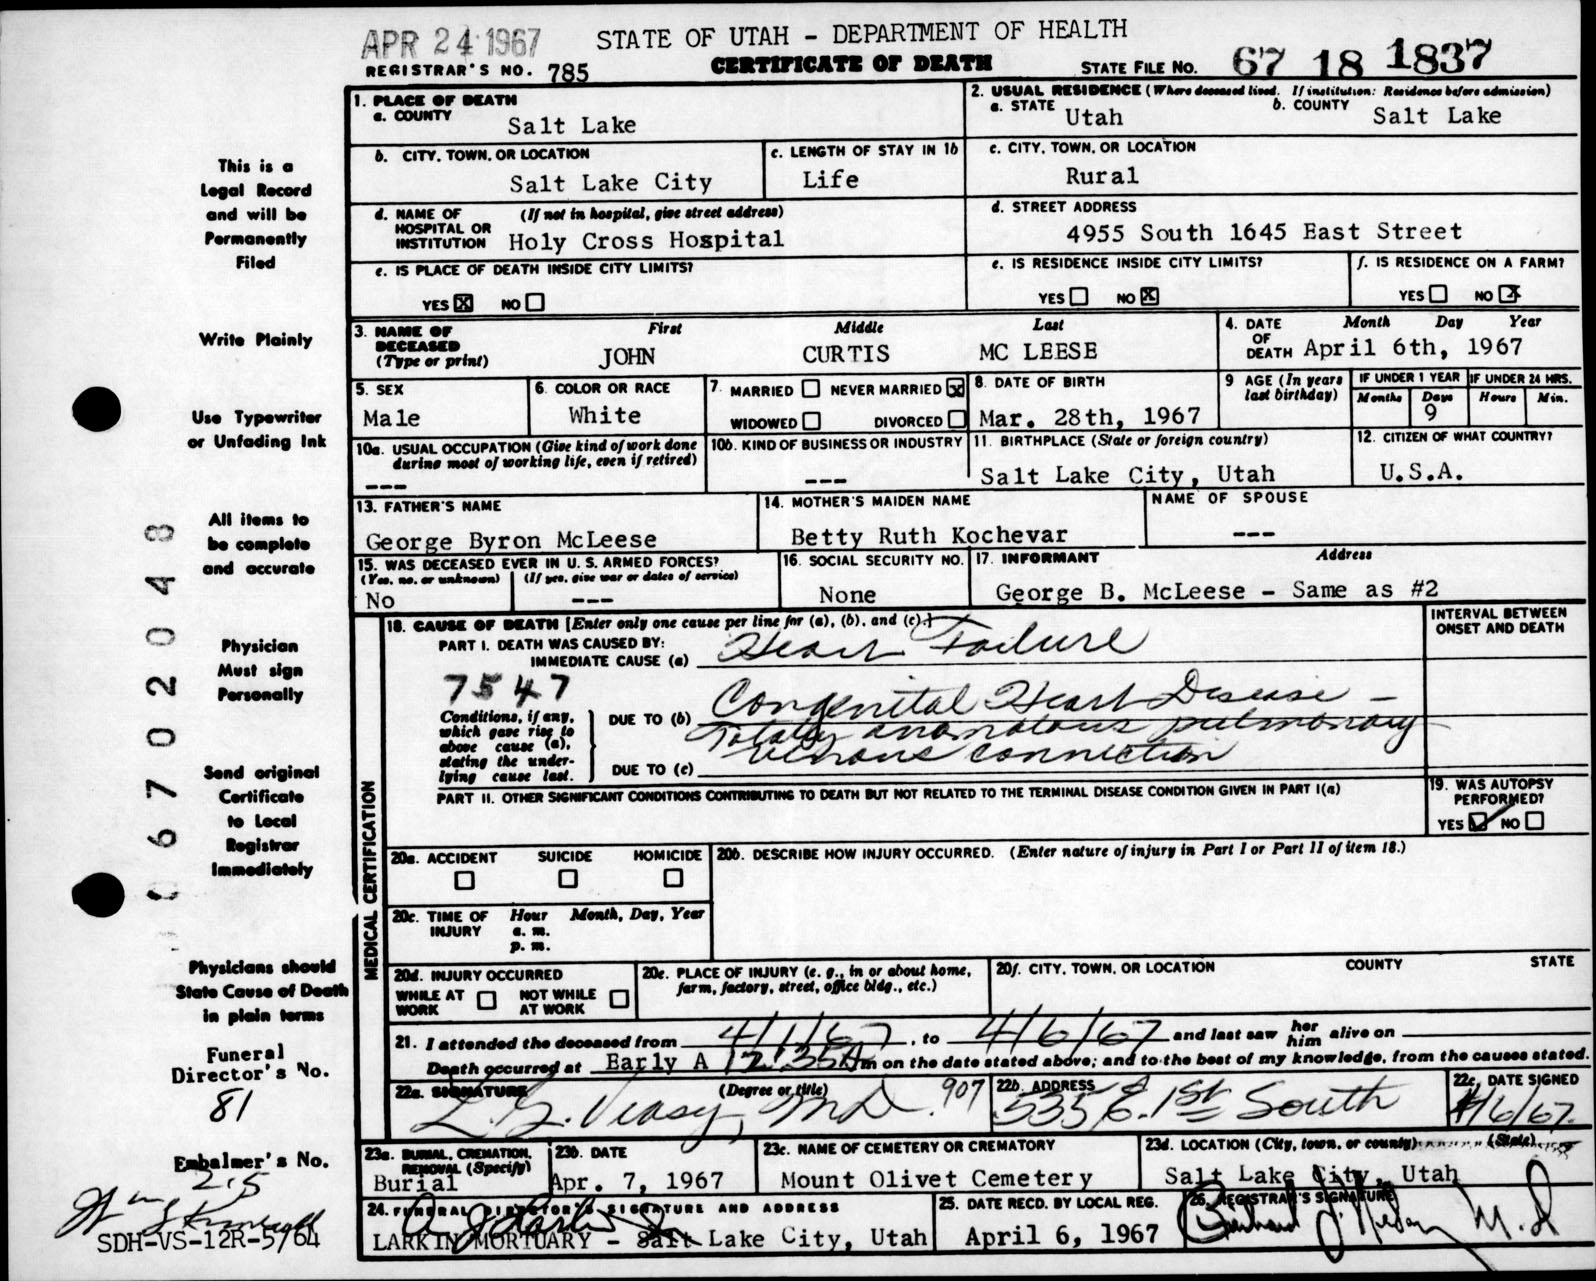 APR 24 1967
STATE OF UTAH - DEPARTMENT OF HEALTH
CERTIFICATE OF DEATH
REGISTRAR'S NO. 785
STATE FILE NO. 67 18 1837
1. PLACE OF DEATH
a. COUNTY
Salt Lake
2. USUAL RESIDENCE (Where deceased lived. If institution: Residence before admission)
a. STATE Utah
b. COUNTY Salt Lake
b. CITY, TOWN, OR LOCATION
Salt Lake City
c. LENGTH OF STAY IN 1b
Life
c. CITY, TOWN, OR LOCATION
Rural
d. NAME OF HOSPITAL OR INSTITUTION (If not in hospital, give street address)
Holy Cross Hospital
d. STREET ADDRESS
4955 South 1645 East Street
e. IS PLACE OF DEATH INSIDE CITY LIMITS?
YES X NO
e. IS RESIDENCE INSIDE CITY LIMITS?
YES NO X
f. IS RESIDENCE ON A FARM?
YES NO X
3. NAME OF DECEASED (Type or print)
First Middle Last
JOHN CURTIS MC LEESE
4. DATE OF DEATH
Month Day Year
April 6th, 1967
5. SEX
Male
6. COLOR OR RACE
White
7. MARRIED NEVER MARRIED X
WIDOWED DIVORCED
8. DATE OF BIRTH
Mar. 28th, 1967
9 AGE (In years last birthday)
IF UNDER 1 YEAR
Months Days
9
IF UNDER 24 HRS.
Hours Min.
10a. USUAL OCCUPATION (Give kind of work done during most of working life, even if retired)
---
10b. KIND OF BUSINESS OR INDUSTRY
---
11. BIRTHPLACE (State or foreign country)
Salt Lake City, Utah
12. CITIZEN OF WHAT COUNTRY?
U.S.A.
13. FATHER'S NAME
George Byron McLeese
14. MOTHER'S MAIDEN NAME
Betty Ruth Kochevar
NAME OF SPOUSE
---
15. WAS DECEASED EVER IN U. S. ARMED FORCES?
(Yes, no, or unknown) (If yes, give war or dates of service)
No ---
16. SOCIAL SECURITY NO.
None
17. INFORMANT Address
George B. McLeese - Same as #2
MEDICAL CERTIFICATION
18. CAUSE OF DEATH [Enter only one cause per line for (a), (b), and (c).]
INTERVAL BETWEEN ONSET AND DEATH
PART I. DEATH WAS CAUSED BY:
IMMEDIATE CAUSE (a) Heart Failure
7547
Conditions, if any, which gave rise to above cause (a), stating the underlying cause last.
DUE TO (b) Congenital Heart Disease -
Totally anomalous pulmonary
venous connection
DUE TO (c)
PART II. OTHER SIGNIFICANT CONDITIONS CONTRIBUTING TO DEATH BUT NOT RELATED TO THE TERMINAL DISEASE CONDITION GIVEN IN PART I(a)
19. WAS AUTOPSY PERFORMED?
YES ✓ NO
20a. ACCIDENT SUICIDE HOMICIDE
20b. DESCRIBE HOW INJURY OCCURRED. (Enter nature of injury in Part I or Part II of item 18.)
20c. TIME OF INJURY Hour Month, Day, Year
a. m.
p. m.
20d. INJURY OCCURRED
WHILE AT WORK NOT WHILE AT WORK
20e. PLACE OF INJURY (e. g., in or about home, farm, factory, street, office bldg., etc.)
20f. CITY, TOWN, OR LOCATION COUNTY STATE
21. I attended the deceased from 4/1/67, to 4/6/67 and last saw her him alive on
Death occurred at Early A 12:35A m on the date stated above; and to the best of my knowledge, from the causes stated.
22a. SIGNATURE (Degree or title)
L. G. Veasy, MD 907
22b. ADDRESS
535 E. 1st South
22c. DATE SIGNED
4/6/67
23a. BURIAL, CREMATION, REMOVAL (Specify)
Burial
23b. DATE
Apr. 7, 1967
23c. NAME OF CEMETERY OR CREMATORY
Mount Olivet Cemetery
23d. LOCATION (City, town, or county) (State)
Salt Lake City, Utah
24. FUNERAL DIRECTOR'S SIGNATURE AND ADDRESS
LARKIN MORTUARY - Salt Lake City, Utah
25. DATE RECD. BY LOCAL REG.
April 6, 1967
26. REGISTRAR'S SIGNATURE
M.D
This is a
Legal Record
and will be
Permanently
Filed
Write Plainly
Use Typewriter
or Unfading Ink
All items to
be complete
and accurate
Physician
Must sign
Personally
Send original
Certificate
to Local
Registrar
Immediately
Physicians should
State Cause of Death
in plain terms
Funeral
Director's No.
81
Embalmer's No.
215
SDH-VS-12R-5/64
0672048